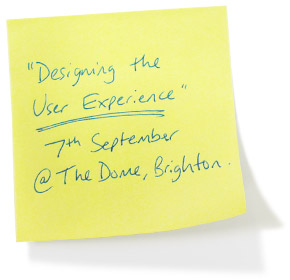 "Designing the
User Experience"
7th September
@ The Dome, Brighton.